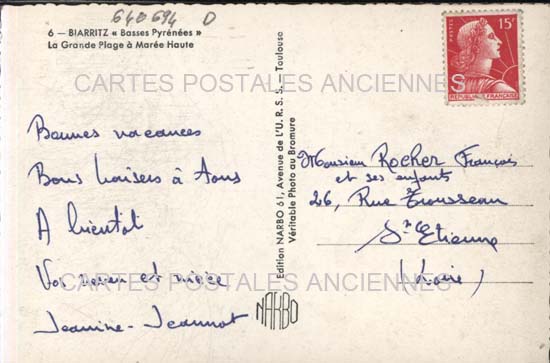 640694 D
6 — BIARRITZ « Basses Pyrénées »
La Grande Plage à Marée Haute
CARTES POSTALES ANCIENNES
Bonnes vacances
Bons baisers à Tous
A bientôt
Vos neveu et nièce
Jeanine - Jeannot
Edition NARBO 61, Avenue de l'U. R. S. S. — Toulouse
Véritable Photo au Bromure
NARBO
POSTES
15F
S
REPUBLIQUE FRANÇAISE
Monsieur Rocher François
et ses enfants
26, Rue Trousseau
St Etienne
(Loire)
CARTES POSTALES ANCIENNES